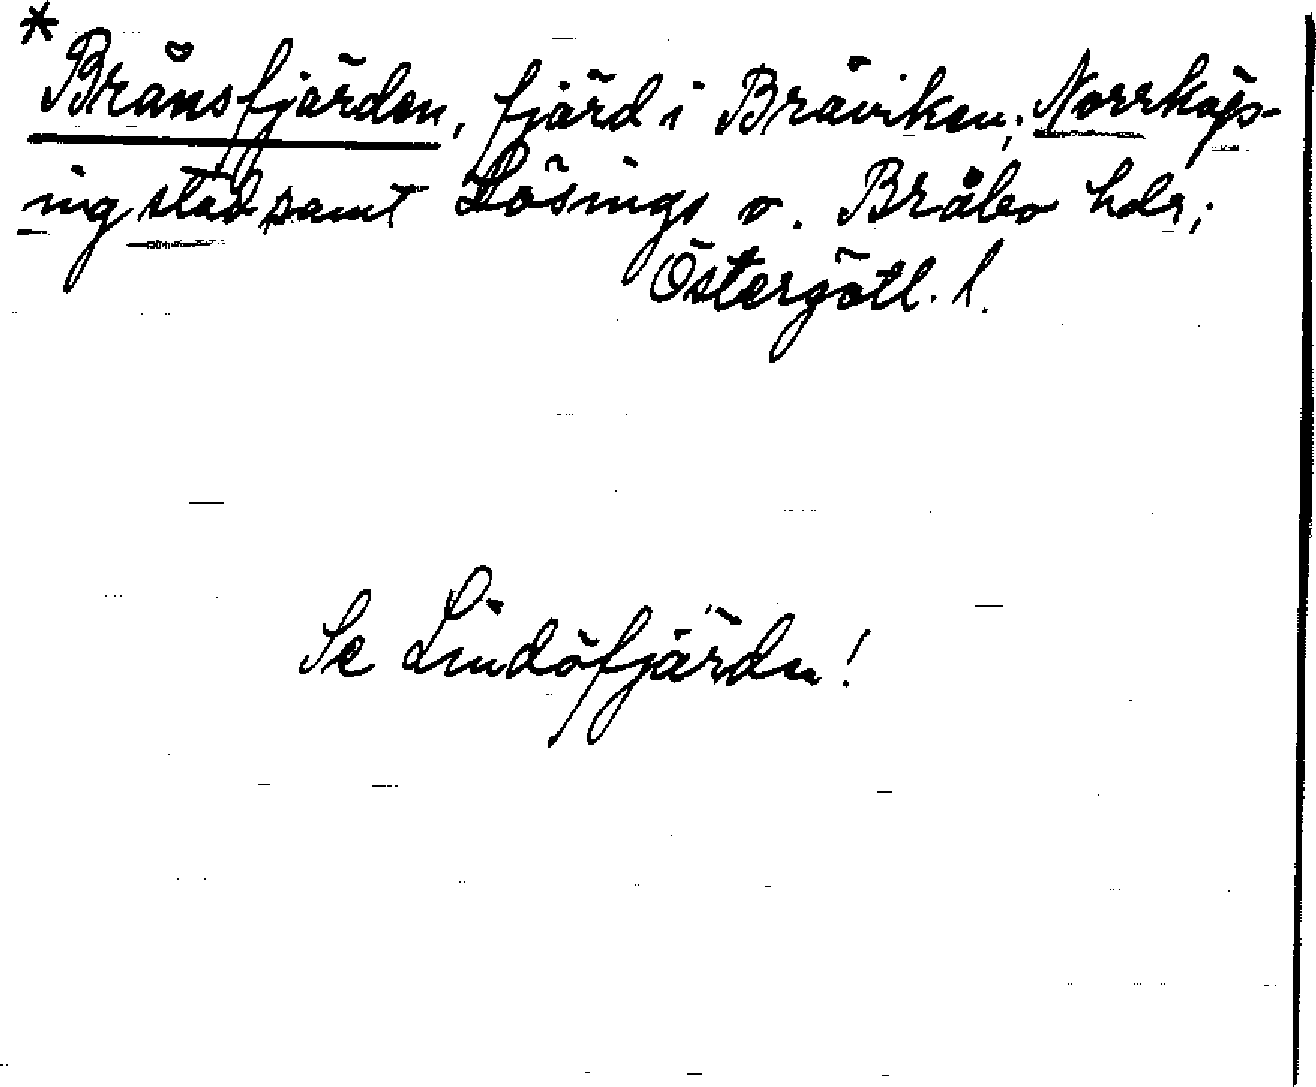 * Bränsfjärden, fjärd i Bråviken; Norrköp-
ing stad samt Lösings o. Bråbo hdr;
Östergötl. l.
Se Lindöfjärden!